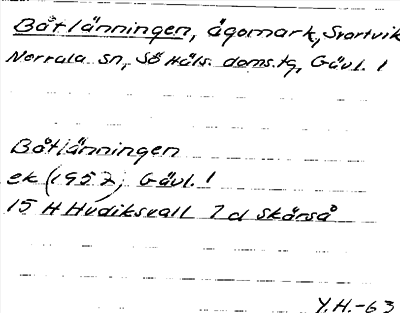 Båtlänningen, ägomark, Svartvik
Norrala sn, Sö Häls. doms.tg, Gävl. l
Båtlänningen
ek (1957), Gävl. l
15 H Hudiksvall 7 d Skärså
Y.H.-63